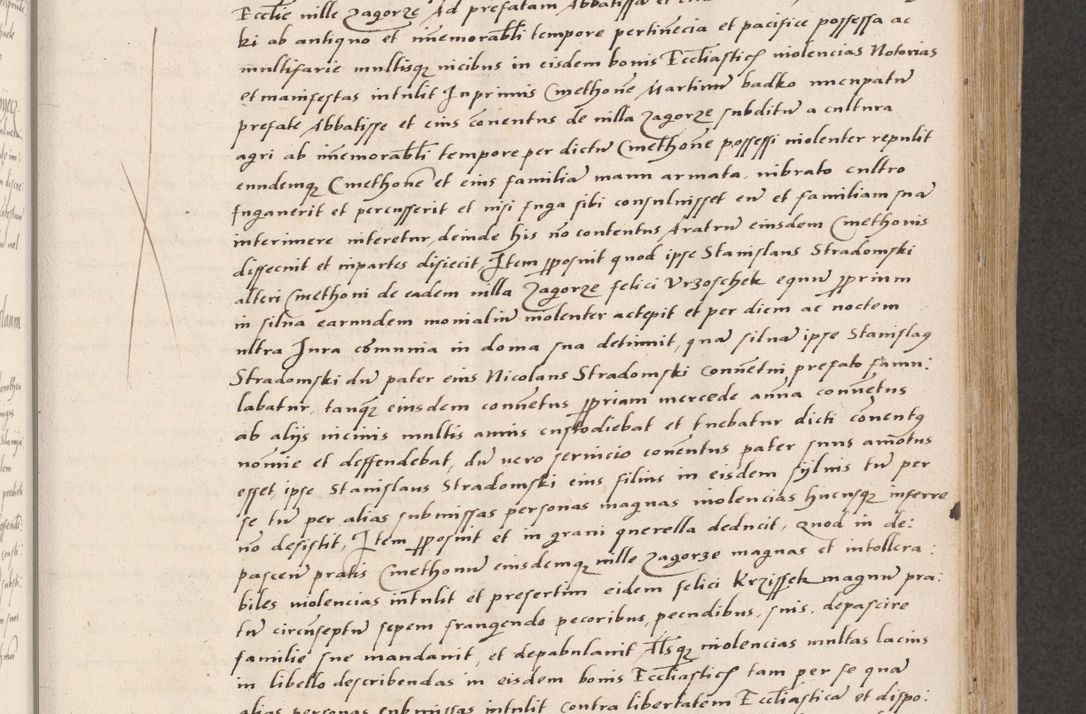 Ecclie ville Zagorze Ad prefatam Abbatissa et
ki ab antiquo et inmemorabli tempore pertinecia et pacifice possessa ac
multifarie multisq vicibus in eisdem bonis Ecclīasticſ violencias Notorias
et manifestas intulit Inprimis Cmethone Martinu badko nucupatu
prefate Abbatisse et eius conventus de villa Zagorze subditu a cultura
agri ab inmemorabli tempore per dictu Cmethone possessi violenter repulit
eundemq Cmethone et eius familia manu armata, vibrato cultro
fugauerit et percusserit et nisi fuga sibi consuluisset eu et familiam sua
interimere niteretur, deinde his no contentus, Aratru eiusdem Cmethonis
dissecuit et inpartes disiecit Item proposuit quod ipse Stanislaus Stradomski
alteri Cmethoni de eadem villa Zagorze felici Vrzoschek equu proprium
in silua earundem monialiu violenter accepit et per diem ac noctem
ultra Jura comunia in doma sua detinuit, qua silua ipse Stanislaq
Stradomski du pater eius Nicolaus Stradomski Conuetui prefato famu:
labatur, tanqz eiusdem conuetus propriam mercede anua conuetus
ab alijs vicinis multis annis custodiebat et tuebatur dicti conuentq
nomie et deffendebat, du vero seruicio conuentus pater suus amotus
esset, ipse Stanislaus Stradomski eius filius in eisdem syluis tu per
se tu per alias submissas personas magnas violencias hucusq inferre
no desistit, Item proposuit et in graui querella deducit, quod in de:
pasceu pratis Cmethonu eiusdemq ville Zagorze magnas et intollera:
biles violencias intulit et presertim eidem felici Krzissek magnu pra:
tu circuseptu sepem frangendo pecoribus, pecudibus, suis, depascire
familie sue mandauit, et depabulauit Alsq violencias multas lacius
in libello describendas in eisdem bonis Ecclīasticſ tam per se qua
alias personas submissas intulit contra libertatem Ecclīastica et dispo: